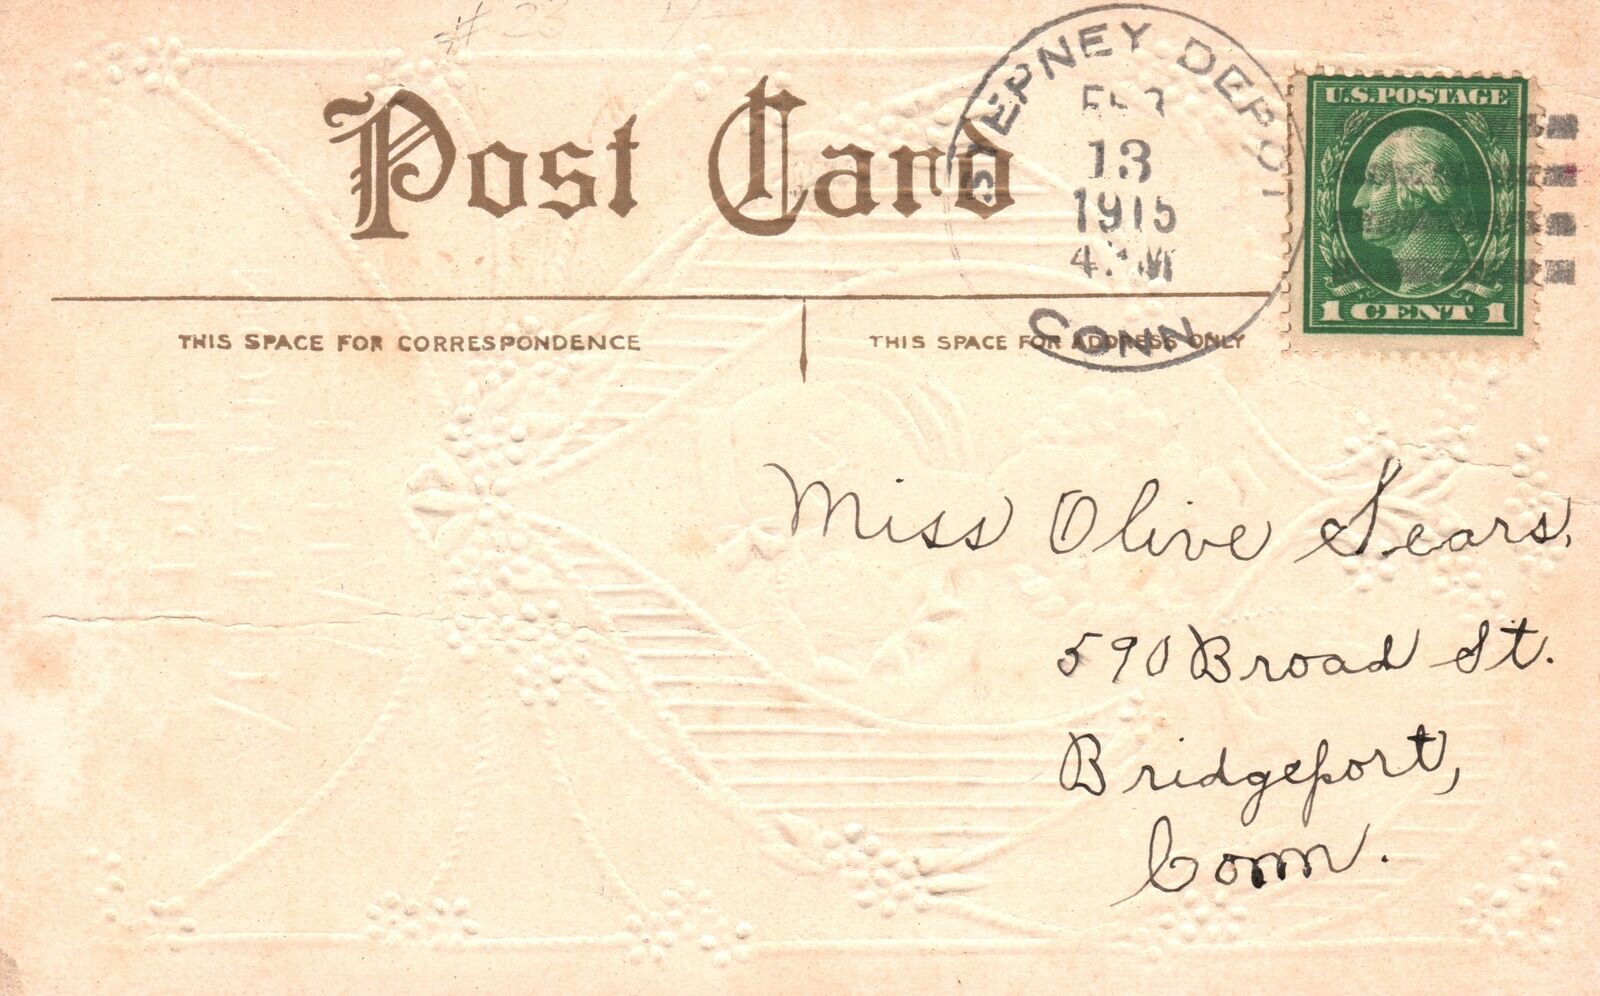 # 33
Post Card
STEPNEY DEPOT
FEB
13
1915
4 M
CONN
U.S. POSTAGE
1 CENT 1
THIS SPACE FOR CORRESPONDENCE
THIS SPACE FOR ADDRESS ONLY
Miss Olive Sears,
590 Broad St.
Bridgeport,
Conn.